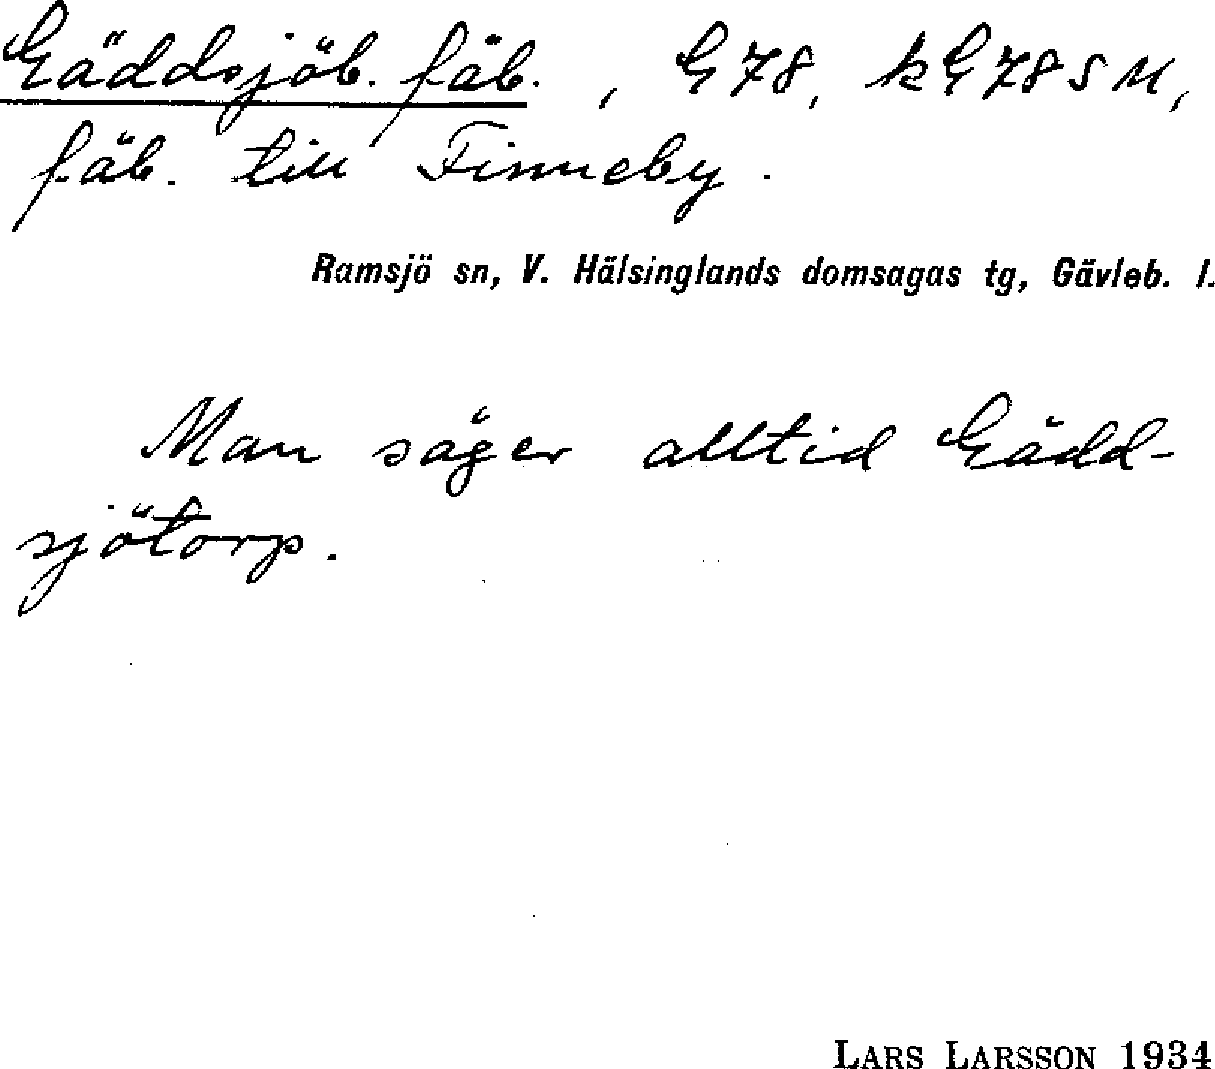 Gäddsjöb. fäb. , G78, kG78SM,
fäb. till Finneby.
Ramsjö sn, V. Hälsinglands domsagas tg, Gävleb. l.
Man säger alltid Gädd-
sjötorp.
LARS LARSSON 1934